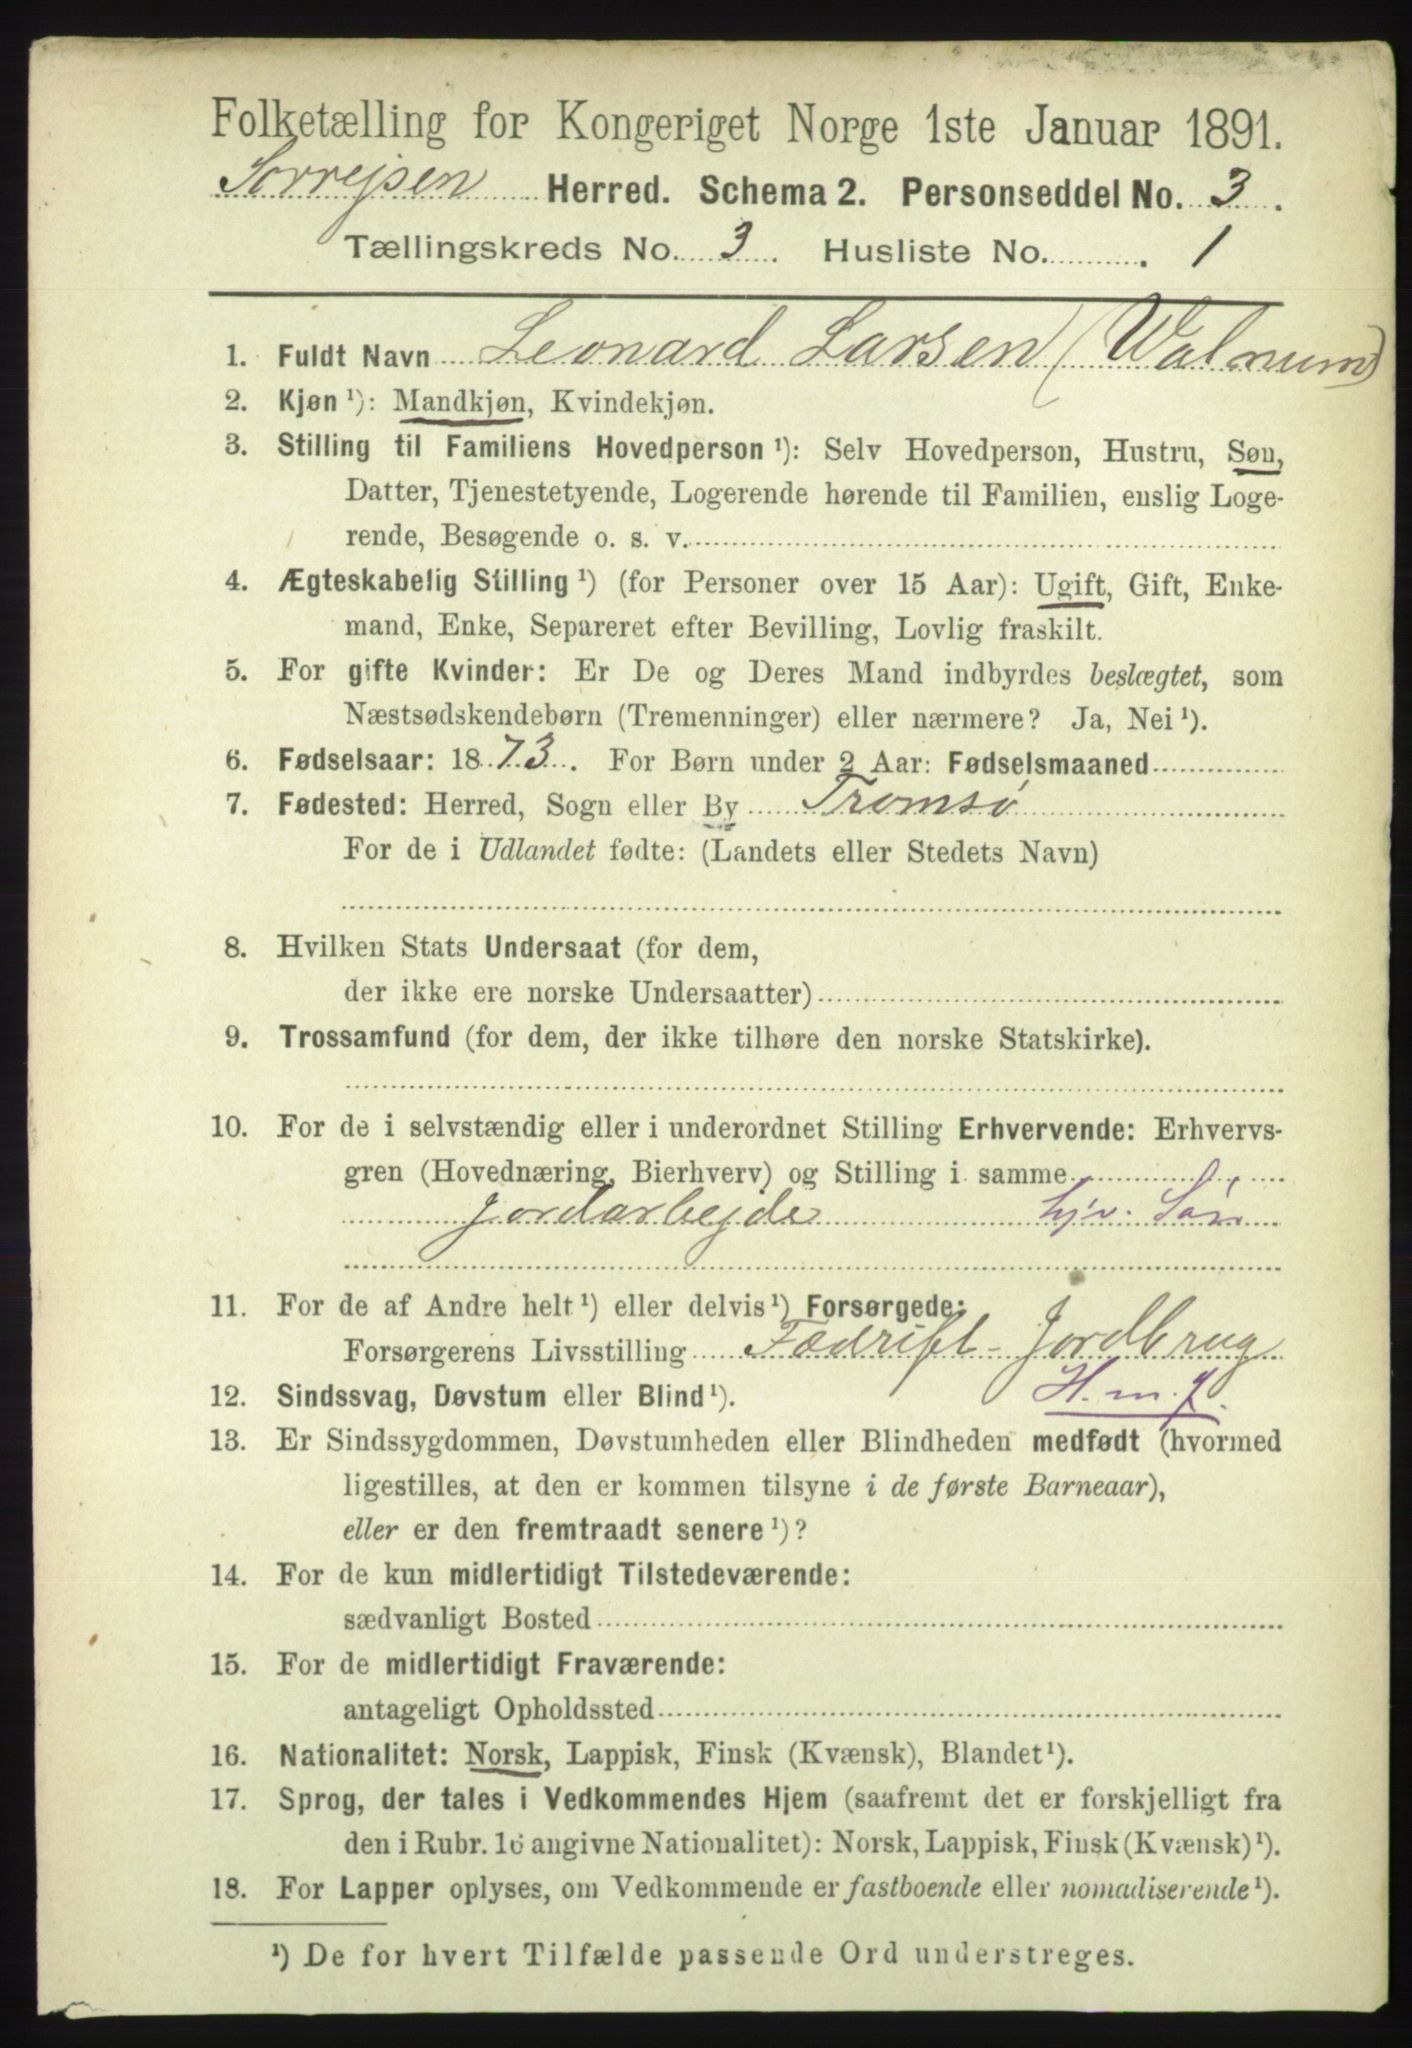 Folketælling for Kongeriget Norge 1ste Januar 1891.
Sorrejsen Herred. Schema 2. Personseddel No. 3.
Tællingskreds No. 3. Husliste No. 1
1. Fuldt Navn Leonard Larsen (Walnum)
2. Kjøn ¹): Mandkjøn, Kvindekjøn.
3. Stilling til Familiens Hovedperson ¹): Selv Hovedperson, Hustru, Søn,
Datter, Tjenestetyende, Logerende hørende til Familien, enslig Loge-
rende, Besøgende o. s. v.
4. Ægteskabelig Stilling ¹) (for Personer over 15 Aar): Ugift, Gift, Enke-
mand, Enke, Separeret efter Bevilling, Lovlig fraskilt.
5. For gifte Kvinder: Er De og Deres Mand indbyrdes beslægtet, som
Næstsødskendebørn (Tremenninger) eller nærmere? Ja, Nei ¹).
6. Fødselsaar: 1873. For Børn under 2 Aar: Fødselsmaaned
7. Fødested: Herred, Sogn eller By Tromsø
For de i Udlandet fødte: (Landets eller Stedets Navn)
8. Hvilken Stats Undersaat (for dem,
der ikke ere norske Undersaatter)
9. Trossamfund (for dem, der ikke tilhøre den norske Statskirke).
10. For de i selvstændig eller i underordnet Stilling Erhvervende: Erhvervs-
gren (Hovednæring, Bierhverv) og Stilling i samme
Jordarbejde hjv. Søn
11. For de af Andre helt ¹) eller delvis ¹) Forsørgede:
Forsørgerens Livsstilling Fædrift - Jordbrug
12. Sindssvag, Døvstum eller Blind ¹). H. m. J.
13. Er Sindssygdommen, Døvstumheden eller Blindheden medfødt (hvormed
ligestilles, at den er kommen tilsyne i de første Barneaar),
eller er den fremtraadt senere ¹)?
14. For de kun midlertidigt Tilstedeværende:
sædvanligt Bosted
15. For de midlertidigt Fraværende:
antageligt Opholdssted
16. Nationalitet: Norsk, Lappisk, Finsk (Kvænsk), Blandet ¹).
17. Sprog, der tales i Vedkommendes Hjem (saafremt det er forskjelligt fra
den i Rubr. 16 angivne Nationalitet): Norsk, Lappisk, Finsk (Kvænsk) ¹).
18. For Lapper oplyses, om Vedkommende er fastboende eller nomadiserende ¹).
¹) De for hvert Tilfælde passende Ord understreges.